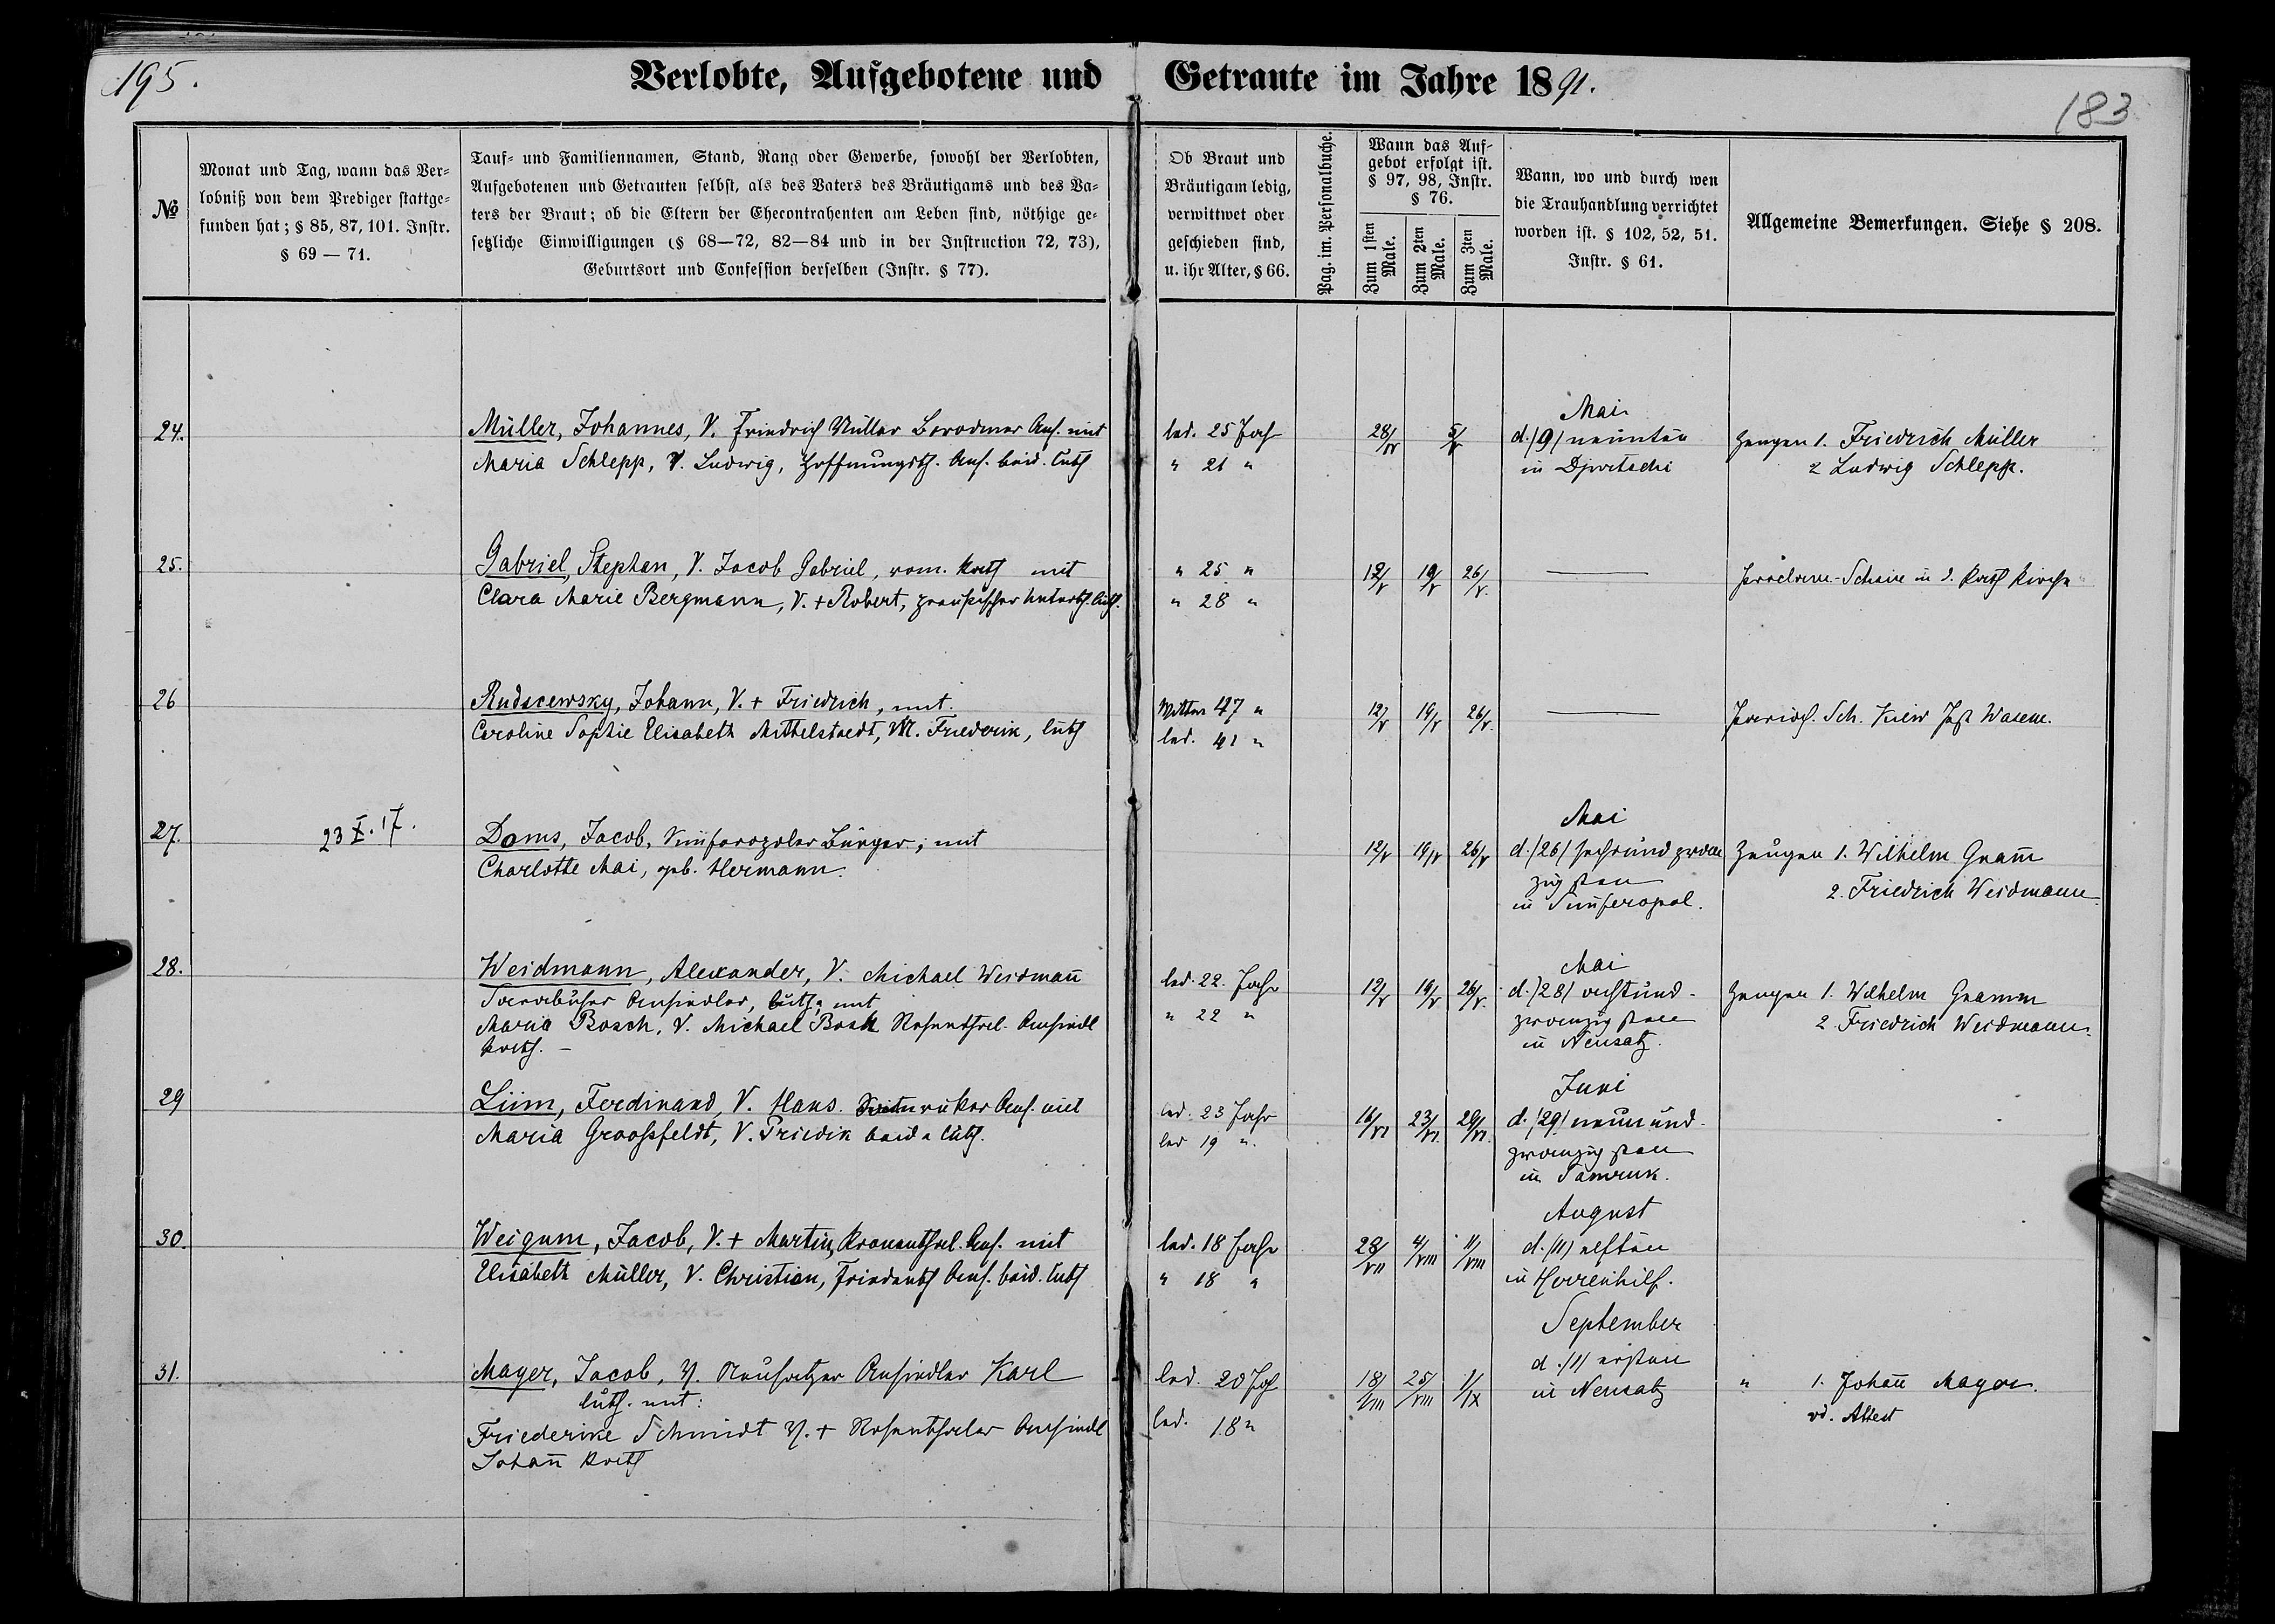 195.
183
Verlobte, Aufgebotene und Getraute im Jahre 1891.
№
Monat und Tag, wann das Ver=
lobniß von dem Prediger stattge=
funden hat; § 85, 87, 101. Instr.
§ 69 — 71.
Tauf= und Familiennamen, Stand, Rang oder Gewerbe, sowohl der Verlobten,
Aufgebotenen und Getrauten selbst, als des Vaters des Bräutigams und des Va=
ters der Braut; ob die Eltern der Ehecontrahenten am Leben sind, nöthige ge=
setzliche Einwilligungen (§ 68—72, 82—84 und in der Instruction 72, 73),
Geburtsort und Confession derselben (Instr. § 77).
Ob Braut und
Bräutigam ledig,
verwittwet oder
geschieden sind,
u. ihr Alter, § 66.
Pag. im. Personalbuche.
Wann das Auf=
gebot erfolgt ist.
§ 97, 98, Instr.
§ 76.
Zum 1sten
Male.
Zum 2ten
Male.
Zum 3ten
Male.
Wann, wo und durch wen
die Trauhandlung verrichtet
worden ist. § 102, 52, 51.
Instr. § 61.
Allgemeine Bemerkungen. Siehe § 208.
24.
Müller, Johannes, V. Friedrich Müller Ans. mit
Maria Schlepp, V. Ludwig, Hoffnungsth. Ans. beid. luth
led. 25 Jahr
" 21 "
28/IV 5/V
Mai
d. /9/ neunten
in Djvitschi
Zeugen 1. Friedrich Müller
2 Ludwig Schlepp.
25.
Gabriel, Stephan, V. Jacob Gabriel, röm. kath mit
Clara Marie Bergmann, V. + Robert, preußischer Unterth. luth.
" 25 "
" 28 "
12/V 19/V 26/V.
in d. kath Kirche
26
Rudscewsky, Johann, V. + Friedrich, mit.
Caroline Sophie Elisabeth Mittelstaedt, M. Friederik, luth
Wittwr 47 "
led. 41 "
12/V 19/V 26/V.
Sch.
27.
23 X. 17.
Doms, Jacob, Simferopoler Bürger; mit
Charlotte Mai, geb. Hermann.
12/V 19/V 26/V
Mai
d. /26/ sechsundzwan
zigsten
in Simferopol.
Zeugen 1. Wilhelm Gram̅
2. Friedrich Weidmann
28.
Weidmann, Alexander, V. Michael Weidman̅
Ansiedler, luth; mit
Maria Bosch, V. Michael Bosch Rosenthal. Ansiedl
kath. –
led. 22. Jahr
" 22 "
12/V 19/V 26/V.
Mai
d. /28/ achtund-
zwanzigsten
in Neusatz.
Zeugen 1. Wilhelm Gramm
2. Friedrich Weidmann.
29
Liim, Ferdinand, V. Hans. Ans. mit
Maria Groossfeldt, V. Priedik beide luth.
led. 23 Jahr
led 19 ".
16/VI 23/VI. 29/VI.
Juni
d. /29/ neunund-
zwanzigsten
in Tamruk.
30.
Weigum, Jacob, V. + Martin, Kronenthal. Ans. mit
Elisabeth Müller, V. Christian, Friedenth Ans. beid. luth
led. 18 Jahr
" 18 "
28/VII 4/VIII 11/VIII
August
d. /11/ elften
in Herrenhilf.
31.
Mayer, Jacob, V. Neusatzer Ansiedler Karl
luth. mit:
Friederike Schmidt V. + Rosenthaler Ansiedl
Johan̅ kath
led. 20 Jah
led. 18 "
18/VIII 25/VIII 1/IX
September
d. /1/ ersten
in Neusatz
" 1. Johan̅ Mayer.
vd. Attest